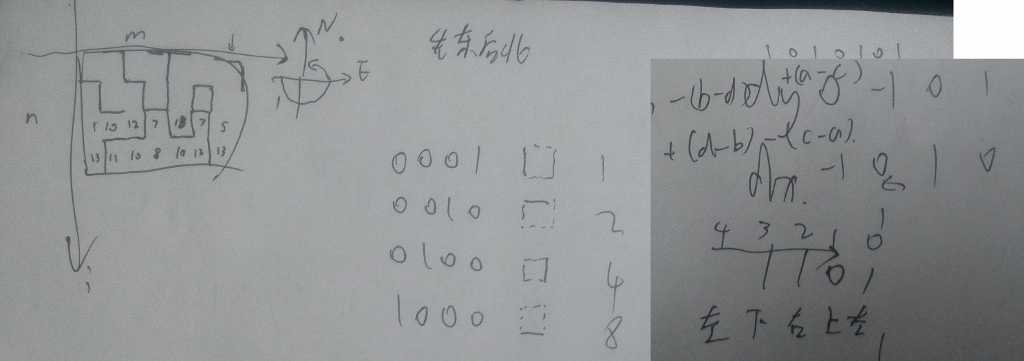 m
n
N
E
1 10 12 7 13 7 5
13 11 10 8 10 12 13
先东后北
0001 1
0010 2
0100 4
1000 8
1010101
-(b-d) +(a-c)
dy 0 -1 0 1
+(d-b) -(c-a)
dx -1 0 1 0
4 3 2 1 0
左下右上左